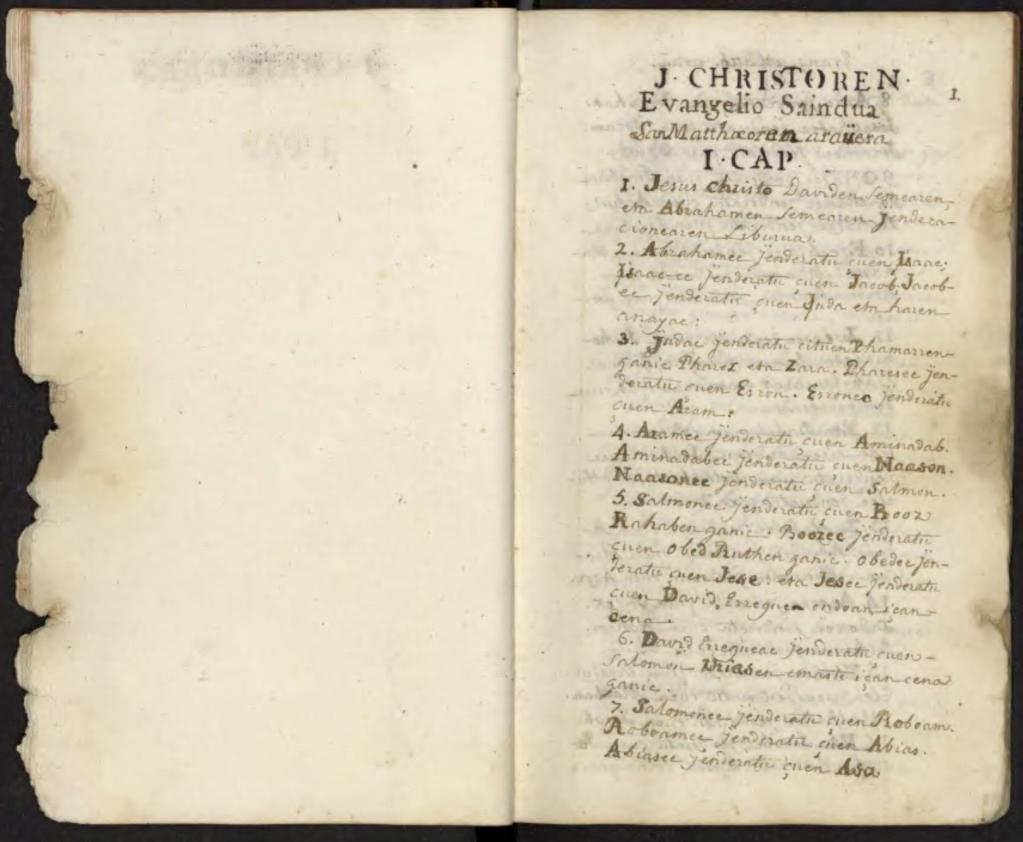 J. CHRISTOREN.
1.
Evangelio Saindua
San Matthæoren arauera
I. CAP.
1. Jesus christo Daviden semearen,
eta Abrahamen semearen Jendera-
cionearen Liburua.
2. Abrahamec jenderatu çuen Isaac;
Isaac-ec jenderatu çuen Jacob; Jacob-
ec jenderatu çuen Juda eta haren
anayac:
3. Judac jenderatu cituen Thamarren-
ganic Pharez eta Zara. Pharesec jen-
deratu çuen Esron. Esronec jenderatu
çuen Aram:
4. Aramec jenderatu çuen Aminadab.
Aminadabec jenderatu çuen Naason.
Naasonec jenderatu çuen Salmon.
5. Salmonec jenderatu çuen Booz
Rahaben ganic. Boozec jenderatu
çuen Obed Ruthen ganic. Obedec jen-
deratu çuen Jese: eta Jesec jenderatu
çuen David, Erregue ondoan içan
cena.
6. David Erregueac jenderatu çuen
Salomon Uriasen emaste içan cena
ganic.
7. Salomonec jenderatu çuen Roboam.
Roboamec jenderatu çuen Abias.
Abiasec jenderatu çuen Asa